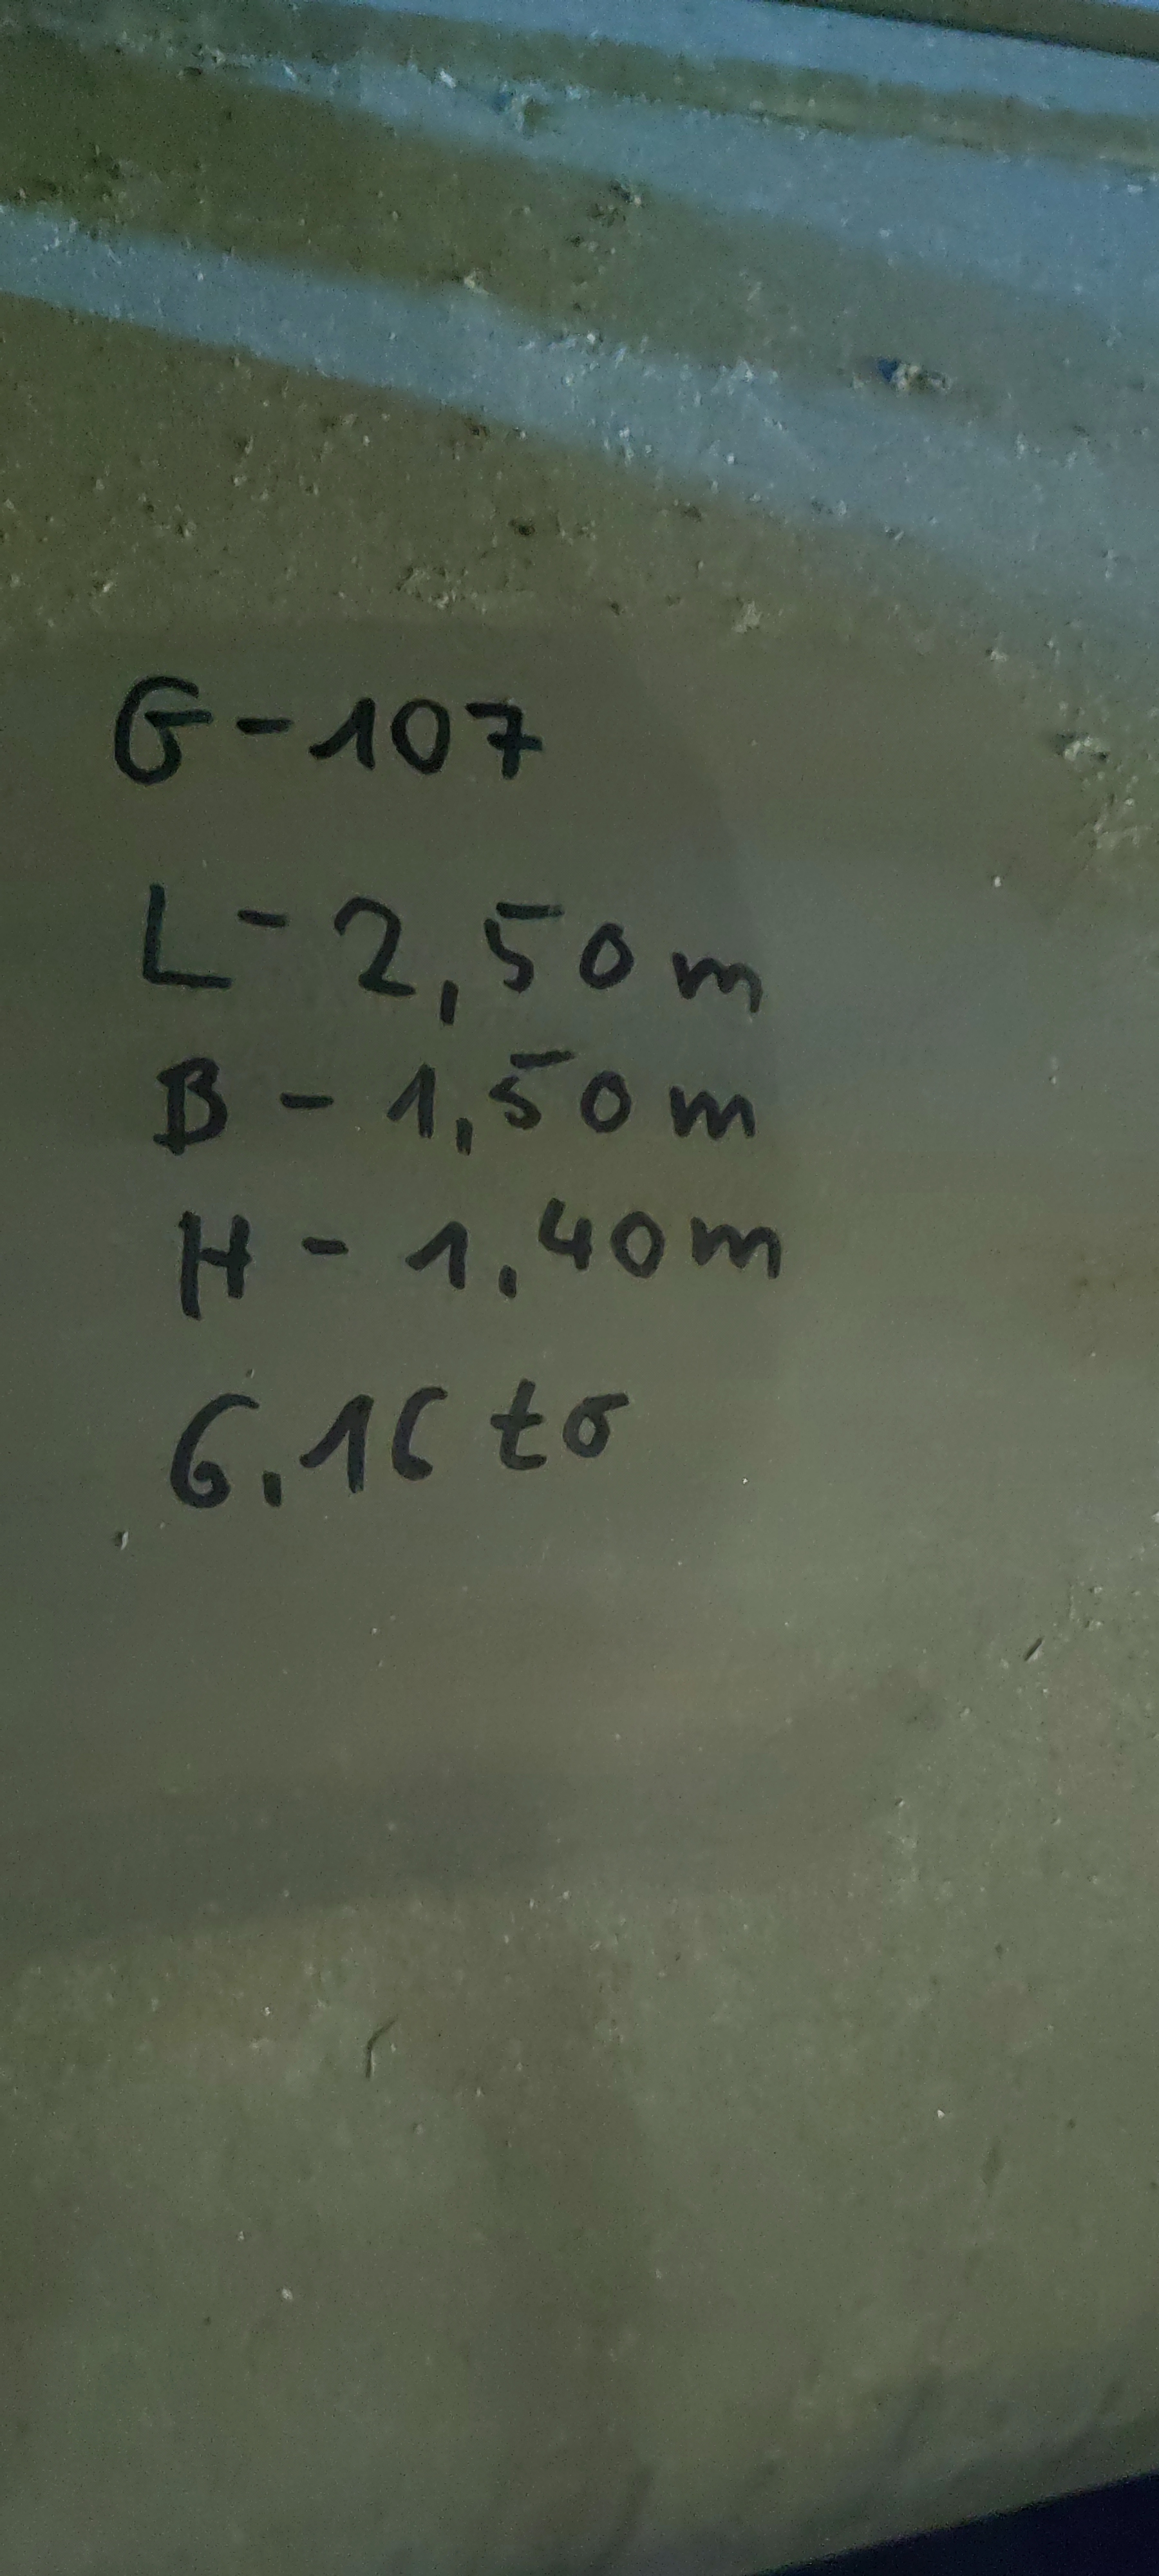 G-107
L-2,50m
B-1,50m
H-1,40m
6,16 to